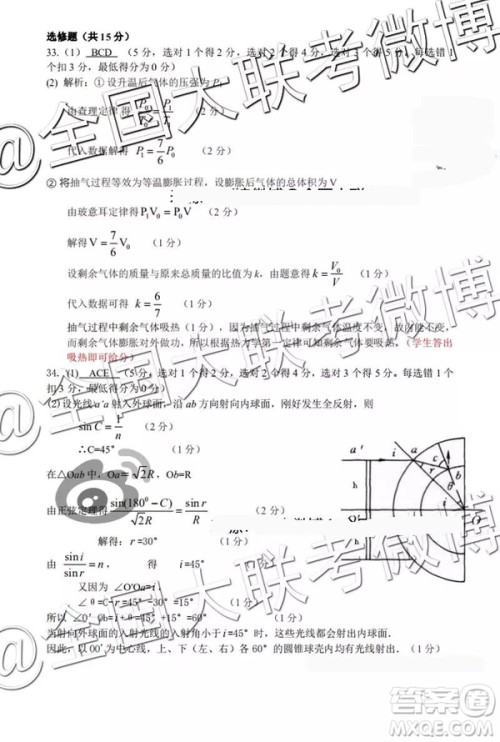 选修题（共 15 分）
33.（1） BCD （5 分，选对 1 个得 2 分，选对 2 个得 4 分，选对 3 个得 5 分，每选错 1
个扣 3 分，最低得分为 0 分）
(2) 解析：① 设升温后气体的压强为 P₁
由查理定律得 P₀/T₀ = P₁/T₁ （2 分）
代入数据解得 P₁ = 7/6 P₀ （2 分）
② 将抽气过程等效为等温膨胀过程，设膨胀后气体的总体积为 V
由玻意耳定律得 P₁V₀ = P₀V （2 分）
解得 V = 7/6 V₀ （1 分）
设剩余气体的质量与原来总质量的比值为 k，由题意得 k = V₀/V （1 分）
代入数据得 k = 6/7 （1 分）
抽气过程中剩余气体吸热（1 分），因为抽气过程中剩余气体温度不变，故内能不变，而
剩余气体膨胀对外做功，所以根据热力学第一定律可知剩余气体要吸热。（学生答出
吸热即可给分）
34.（1） ACE （5 分，选对 1 个得 2 分，选对 2 个得 4 分，选对 3 个得 5 分，每选错 1 个
扣 3 分，最低得分为 0 分）
(2) 设光线 a′a 射入外球面，沿 ab 方向射向内球面，刚好发生全反射，则
sin C = 1/n （2 分）
∴C=45° （1 分）
在△Oab 中，Oa=√2R，Ob=R
由正弦定理得 sin(180⁰−C)/√2R = sin r/R （2 分）
解得：r =30° （1 分）
由 sin i/sin r = n， 得 i =45° （1 分）
又因为 ∠O′Oa=i
∠θ=C-r=45° -30° =15° （1 分）
所以 ∠O′Ob=i+θ=45°+15°=60° （1 分）
当射向外球面的入射光线的入射角小于 i =45°时，这些光线都会射出内球面。
因此，以 OO′为中心线，上、下（左、右）各 60°的圆锥球壳内均有光线射出。（1 分）
a′ i a
r C
b
h
θ
i
h
O
@全国大联考微博
@全国大联考微博
@全国大联考微博
答案圈
MXQE.COM